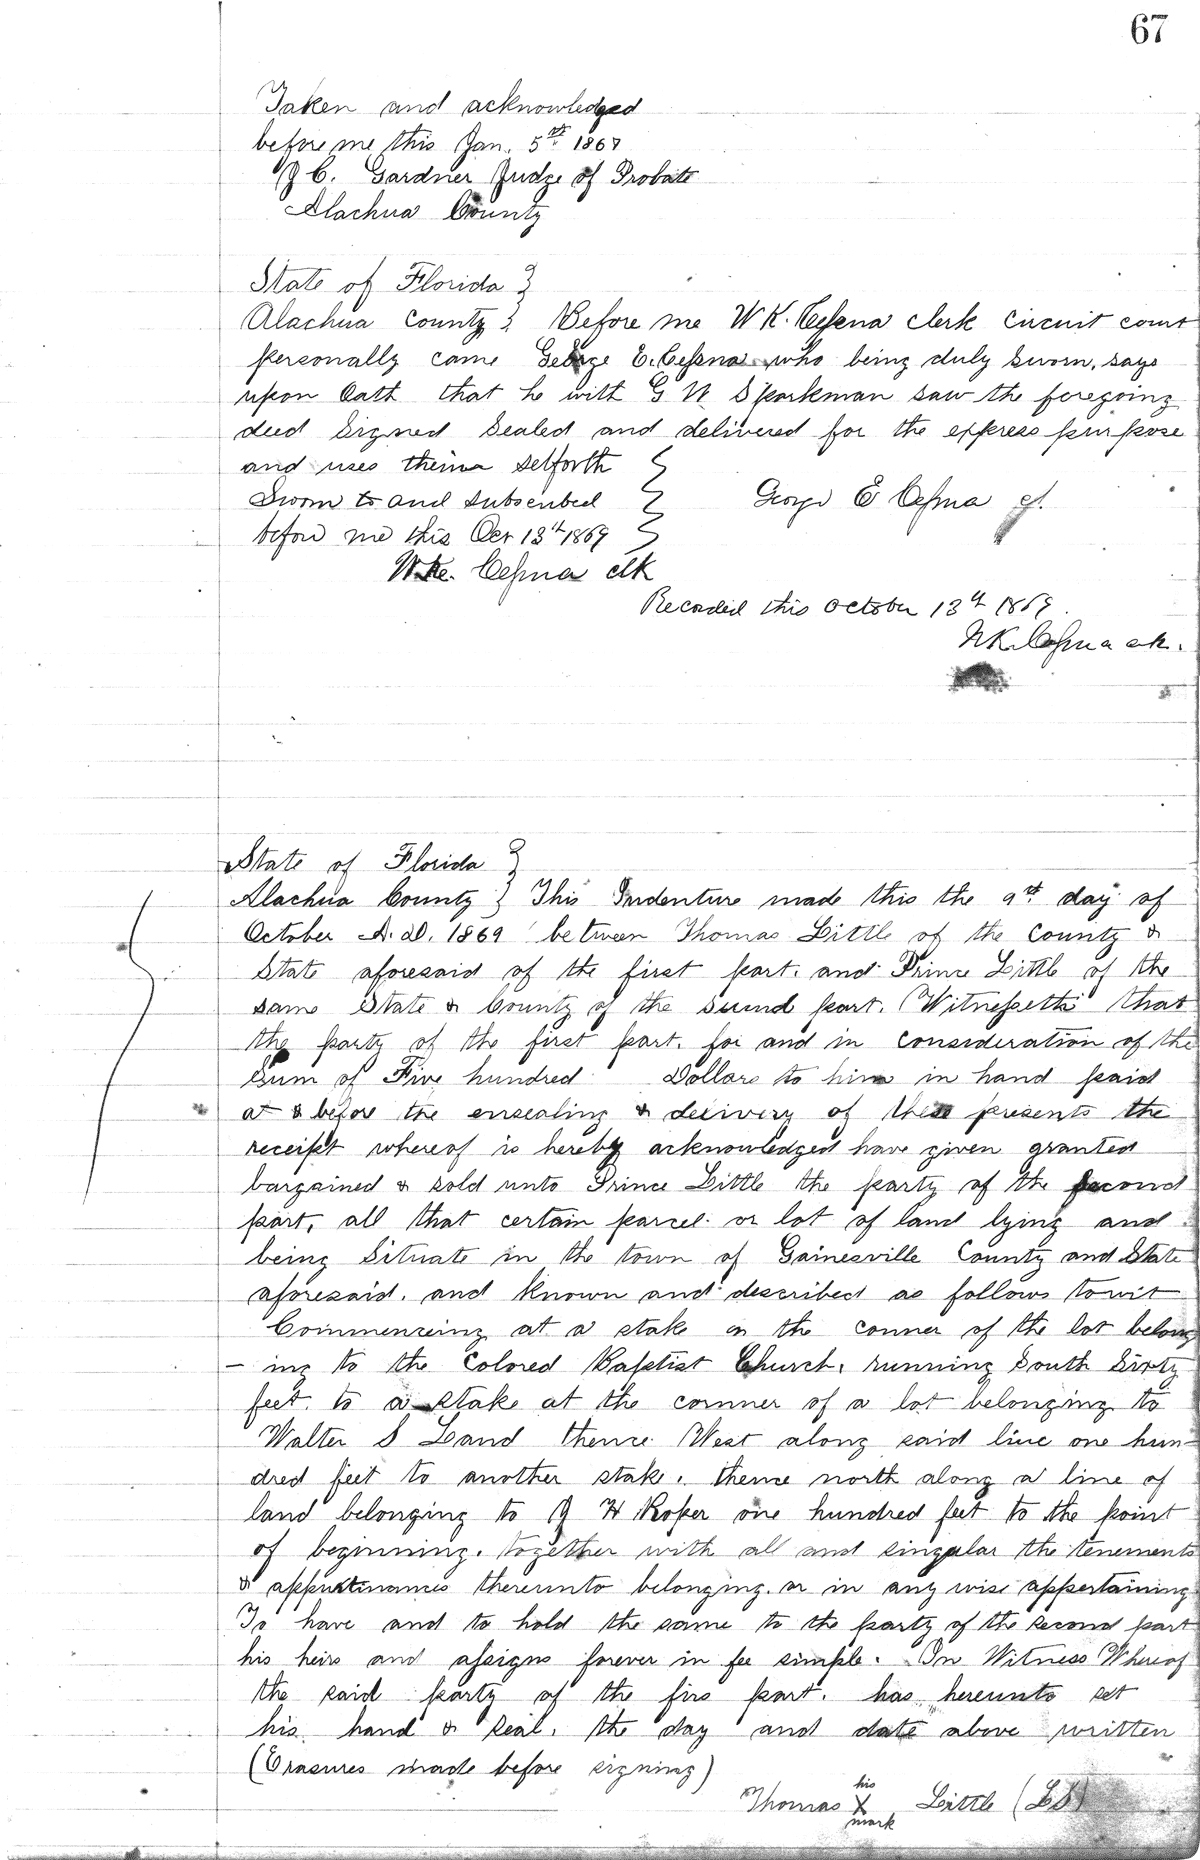 67
Taken and acknowledged
before me this Jan. 5th 1867
J C. Gardner Judge of Probate
Alachua County
State of Florida }
Alachua County } Before me W K. Cessna clerk Circuit court
personally came George E. Cessna who being duly sworn, says
upon Oath that he with G W Sparkman saw the foregoing
deed Signed Sealed and delivered for the express purpose
and uses therina setforth }
Sworn to and subscribed } George E Cessna
before me this Oct 13th 1869 }
W. K. Cessna clk
Recorded this October 13th 1869.
W K. Cessna clk.
State of Florida }
Alachua County } This Indenture made this the 9th day of
October A. D. 1869 between Thomas Little of the County &
State aforesaid of the first part. and Prince Little of the
same State & County of the second part. Witnesseth that
the party of the first part. for and in consideration of the
Sum of Five hundred Dollars to him in hand paid
at & before the ensealing & delivery of these presents the
receipt whereof is hereby acknowledged have given granted
bargained & sold unto Prince Little the party of the second
part, all that certain parcel or lot of land lying and
being Situate in the town of Gainesville County and State
aforesaid. and known and described as follows towit
Commenceing at a stake on the conner of the lot belong
- ing to the Colored Baptist Church, running South Sixty
feet to a stake at the cornner of a lot belonging to
Walter S Land thence West along said line one hun-
dred feet to another stake. thence north along a line of
land belonging to J H Roper one hundred feet to the point
of beginning. together with all and singular the tenements
& appurtinances thereunto belonging. or in any wise appertaining
To have and to hold the same to the party of the second part
his heirs and assigns forever in fee simple. In Witness Whereof
the said party of the firs part. has hereunto set
his hand & seal, the day and date above written
(Erasures made before signing)
his
Thomas X Little (LS)
mark